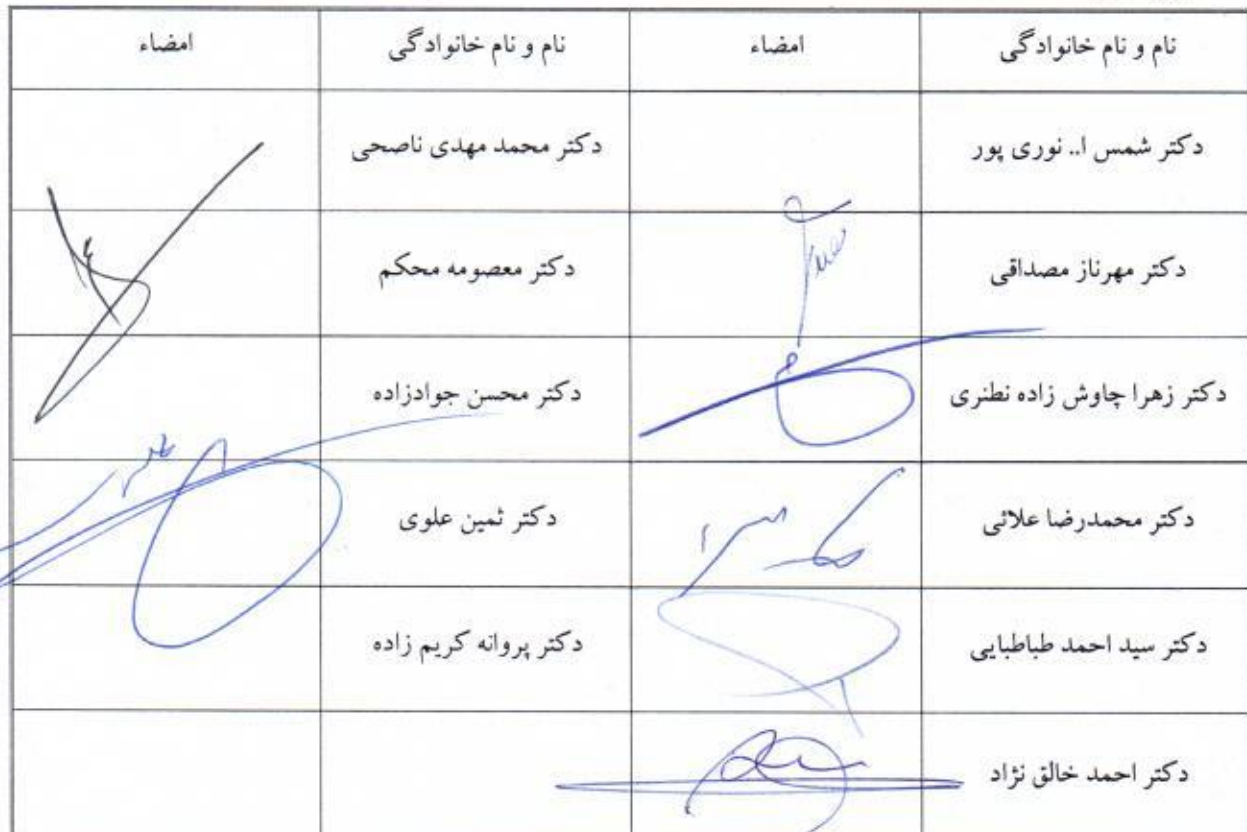 نام و نام خانوادگی امضاء نام و نام خانوادگی امضاء
دکتر شمس ا.. نوری پور دکتر محمد مهدی ناصحی
دکتر مهرناز مصداقی دکتر معصومه محکم
دکتر زهرا چاوش زاده نطنزی دکتر محسن جوادزاده
دکتر محمدرضا علائی دکتر ثمین علوی
دکتر سید احمد طباطبایی دکتر پروانه کریم زاده
دکتر احمد خالق نژاد